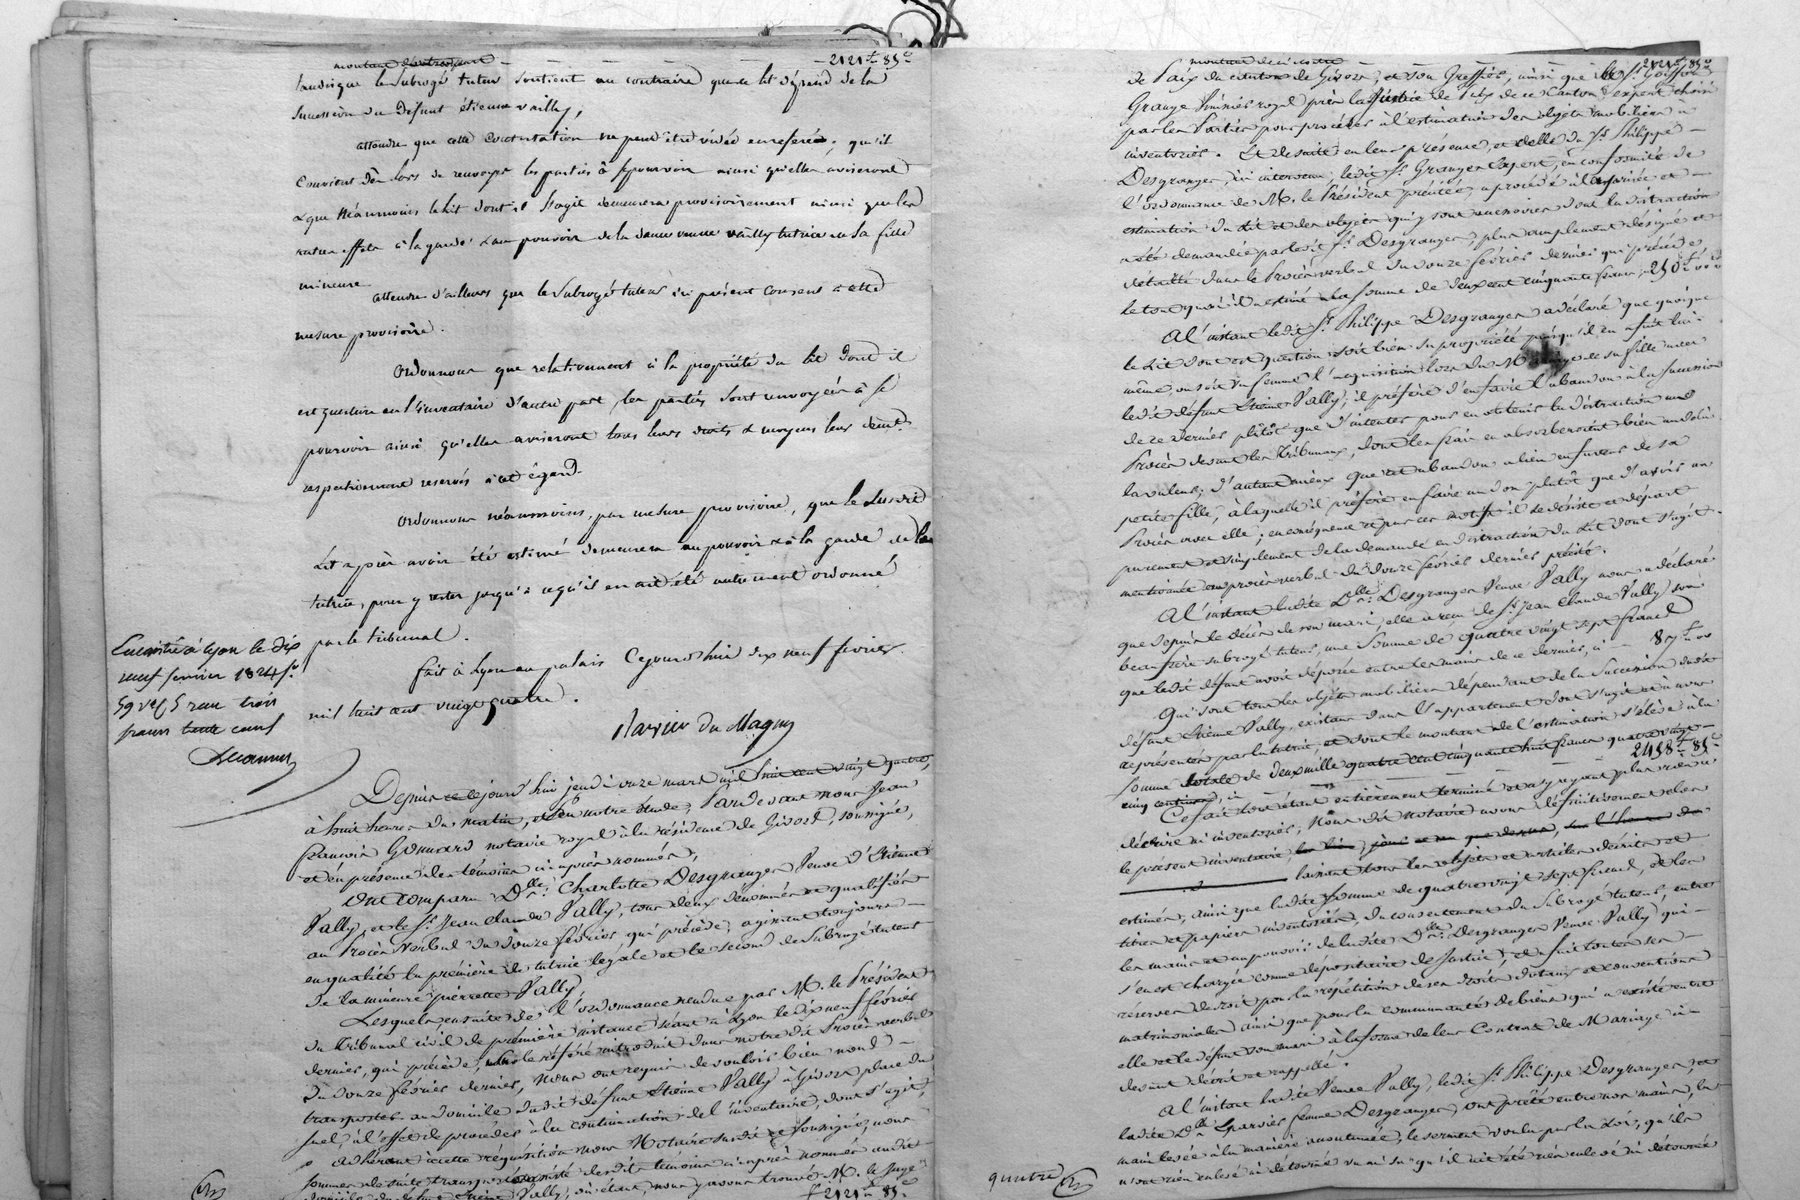 montant de cette part — 2121 ₶ 85 c
tandisque le subrogé tuteur soutient au contraire que ce lit dépend de la
succession du défunt étienne vailly,
attendu que cette contestation ne peut être vidée en référé; qu'il
convient dès lors de renvoyer les parties à se pourvoir ainsi qu'elles aviseront
& que néanmoins le lit dont il s'agit demeurera provisoirement ainsi que les
autres effets à la garde & au pouvoir de la dame veuve vailly tutrice de sa fille
mineure
attendu d'ailleurs que le subrogé tuteur ici présent consent à cette
mesure provisoire.
Ordonnons que relativement à la propriété du lit dont il
est question en l'inventaire d'autre part, les parties sont renvoyées à se
pourvoir ainsi qu'elles aviseront tous leurs droits & moyens leur demt.
respectivement réservés à cet égard.
Ordonnons néanmoins, par mesure provisoire, que le susdit
Lit après avoir été estimé demeurera au pouvoir & à la garde de la
tutrice, pour y rester jusqu'à ce qu'il en ait été autrement ordonné
par le tribunal.
fait à Lyon au palais Cejourd'hui dix neuf fevrier
mil huit cent vingt quatre.
Enregistré à Lyon le dix
neuf fevrier 1824 f.
59 vo C 5 reçu trois
francs trente cens
Depuis ce cejourd'hui jeudi onze mars mil huit cent vingt quatre,
à huit heures du matin, en notre étude; Pardevant nous Jean
François Gonnard notaire royal à la résidence de Givors, soussigné,
et en présence des témoins ci après nommés,
Ont comparu Dlle. Charlotte Desgranges Veuve d'Etienne
Vally, et le Sr. Jean Claude Vally, tous deux dénommés et qualifiés
au Procès verbal du douze février qui précède, agissant toujours
en qualité la première de tutrice légale et le second de Subrogé tuteur
de la mineure pierrette Vally,
Lesquels ensuite de l'ordonnance rendue par M. le Président
du Tribunal civil de première instance séant à Lyon le dix neuf février
dernier, qui précède, sur le référé introduit dans notre dit Procès verbal
du douze février dernier, nous ont requis de vouloir bien nous
transporter au domicile dudit défunt Etienne Vally à Givors place du
suel, à l'effet de procéder à la continuation de l'inventaire, dont s'agit,
adhérant à cette réquisition nous Notaire susdit et soussigné, nous
sommes de suite transporté assisté desdits témoins ci après nommés audit
domicile du défunt Etienne Vally; où étant, nous y avons trouvé M. le Juge
2121 ₶ 85 c
montant de ci contre 2121 ₶ 85 c
de Paix du canton de Givors, et son Greffier, ainsi que le Sr.
Grange huissier royal près la Justice de Paix de ce Canton expert choisi
par les Parties pour procéder à l'estimation des objets mobiliers à
inventorier. Et de suite en leur présence, et celle du Sr. Philippe
Desgranges, ici intervenu, ledit Sr. Granger expert, en conformité de
l'ordonnance de M. le Président précitée, a procédé à la prisée et
estimation du Lit et des objets qui y sont accessoires dont la distraction
a été demandée par ledit Sr. Desgranges, plus amplement désigné et
détaillé dans le Procès verbal du douze février dernier qui précède,
le tout quoi il a estimé à la somme de deux cent cinquante francs, ci 250 ₶ 00
A l'instant ledit Sr. Philippe Desgranges a déclaré que quoique
le Lit dont est question soit bien sa propriété puisqu'il en a fait lui
même, ou soit sa femme l'acquisition lors du Mariage de sa fille avec
ledit défunt Etienne Vally, il préfère d'en faire l'abandon à la succession
de ce dernier plutôt que d'intenter pour en obtenir la distraction un
Procès devant les Tribunaux, dont les frais en absorberoient bien au delà
la valeur; d'autant mieux que cet abandon a lieu en faveur de sa
petite fille, à laquelle il préfère en faire un don plutôt que d'avoir un
Procès avec elle; en conséquence et par ces motifs il se désiste et départ
purement et simplement de la demande en distraction du Lit dont s'agit,
mentionnée au procès verbal du douze février dernier précité.
A l'instant ladite Dlle. Desgranges Veuve Vally nous a déclaré
que depuis le décès de son mari, elle a reçu de Sr. Jean Claude Vally son
beau frère subrogé tuteur, une somme de quatre vingt sept francs
que ledit défunt avoit déposée entre les mains de ce dernier, ci — 87 ₶ 00
Qui sont tous les objets mobiliers dépendant de la Succession dudit
défunt Etienne Vally, existans dans l'appartement dont s'agit et à nous
représentés par la tutrice, et dont le montant de l'estimation s'élève à la
somme totale de deux mille quatre cent cinquante huit francs quatre vingt
cinq centimes, ci 2458 ₶ 85 c
Ce fait le tout étant entièrement terminé et n'y ayant plus rien à
décrire ni inventorier, Nous dit notaire avons définitivement clos
le présent inventaire,
laissant tous les objets et articles décrits et
estimés, ainsi que ladite somme de quatre vingt sept francs, et les
titres et papiers inventoriés, du consentement du Subrogé tuteur, entre
les mains et au pouvoir de ladite Dlle. Desgranges Veuve Vally qui
s'en est chargée comme dépositaire de Justice, et en fait toutes ses
réserves de droit pour la répétition de ses droits dotaux et conventions
matrimoniales ainsi que pour la communauté de biens qui a existé entre
elle et le défunt son mari à la forme de leur Contrat de Mariage ci
devant décrit et rappelé.
A l'instant ladite Veuve Vally, ledit Sr. Philippe Desgranges, et
ladite Dlle. femme Desgranges, ont prêté entre nos mains, la
main levée à la manière accoutumée, le serment voulu par la Loi, qu'ils
n'ont rien enlevé ni détourné vu ni su qu'il ait été rien enlevé ni détourné
quatre